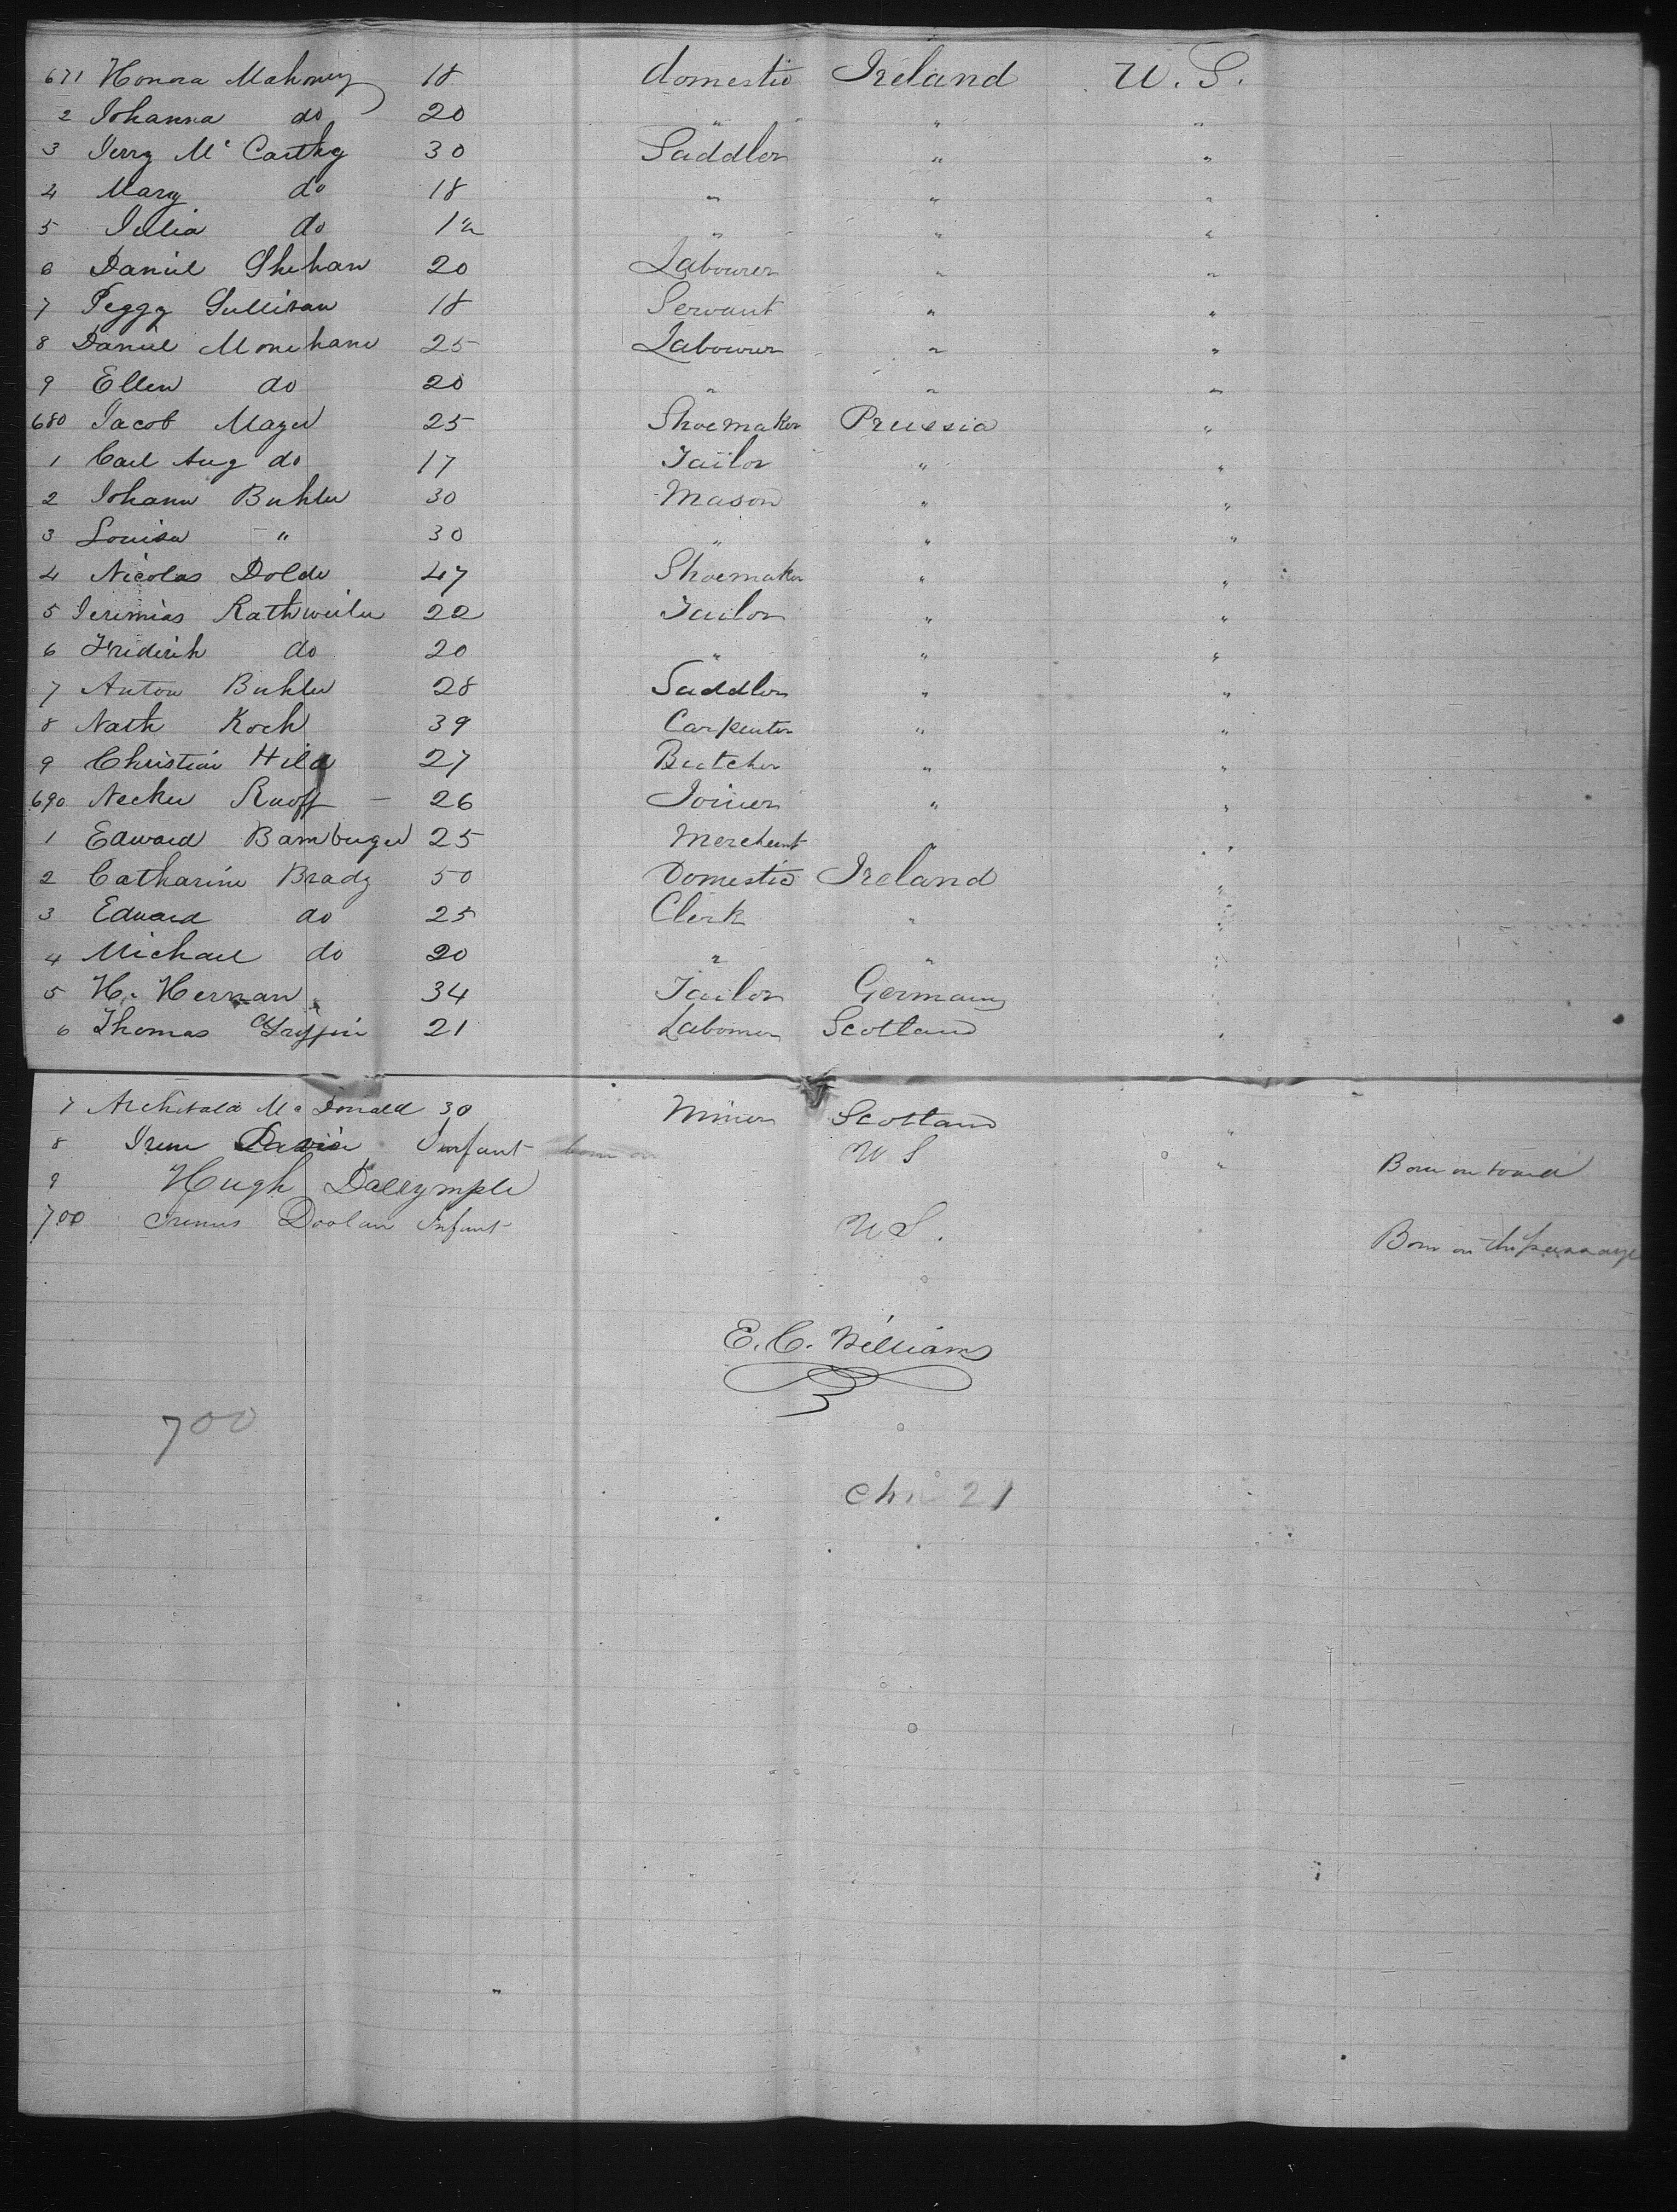 671 Honora Mahoney 18 domestic Ireland U. S.
2 Johanna do 20 " " "
3 Jerry Mc Carthy 30 Saddler " "
4 Mary do 18 " " "
5 Julia do 12 " " "
6 Daniel Shehan 20 Labourer " "
7 Peggy Sullivan 18 Servant " "
8 Daniel Monehane 25 Labourer " "
9 Ellen do 20 " " "
680 Jacob Mayer 25 Shoemaker Prussia "
1 Carl Aug do 17 Tailor " "
2 Johann Buhler 30 Mason " "
3 Louisa " 30 " " "
4 Nicolas Dolde 47 Shoemaker " "
5 Jeremias Rathweiler 22 Tailor " "
6 Friderih do 20 " " "
7 Anton Buhler 28 Saddler " "
8 Nath Koch 39 Carpenter " "
9 Christian Hild 27 Butcher " "
690 Necker Ruoff - 26 Joiner " "
1 Edward Bamberger 25 Merchant " "
2 Catharine Brady 50 Domestic Ireland "
3 Edward do 25 Clerk " "
4 Michael do 20 " " "
5 H. Herman 34 Tailor Germany
6 Thomas Griffin 21 Labourer Scotland "
7 Archibald Mc Donald 30 Miner Scotland "
8 Infant born on U S " Born on board
9 Hugh Dallymple
700 Doolan Infant U S. Born on the passage
E. C. Williams
700
21